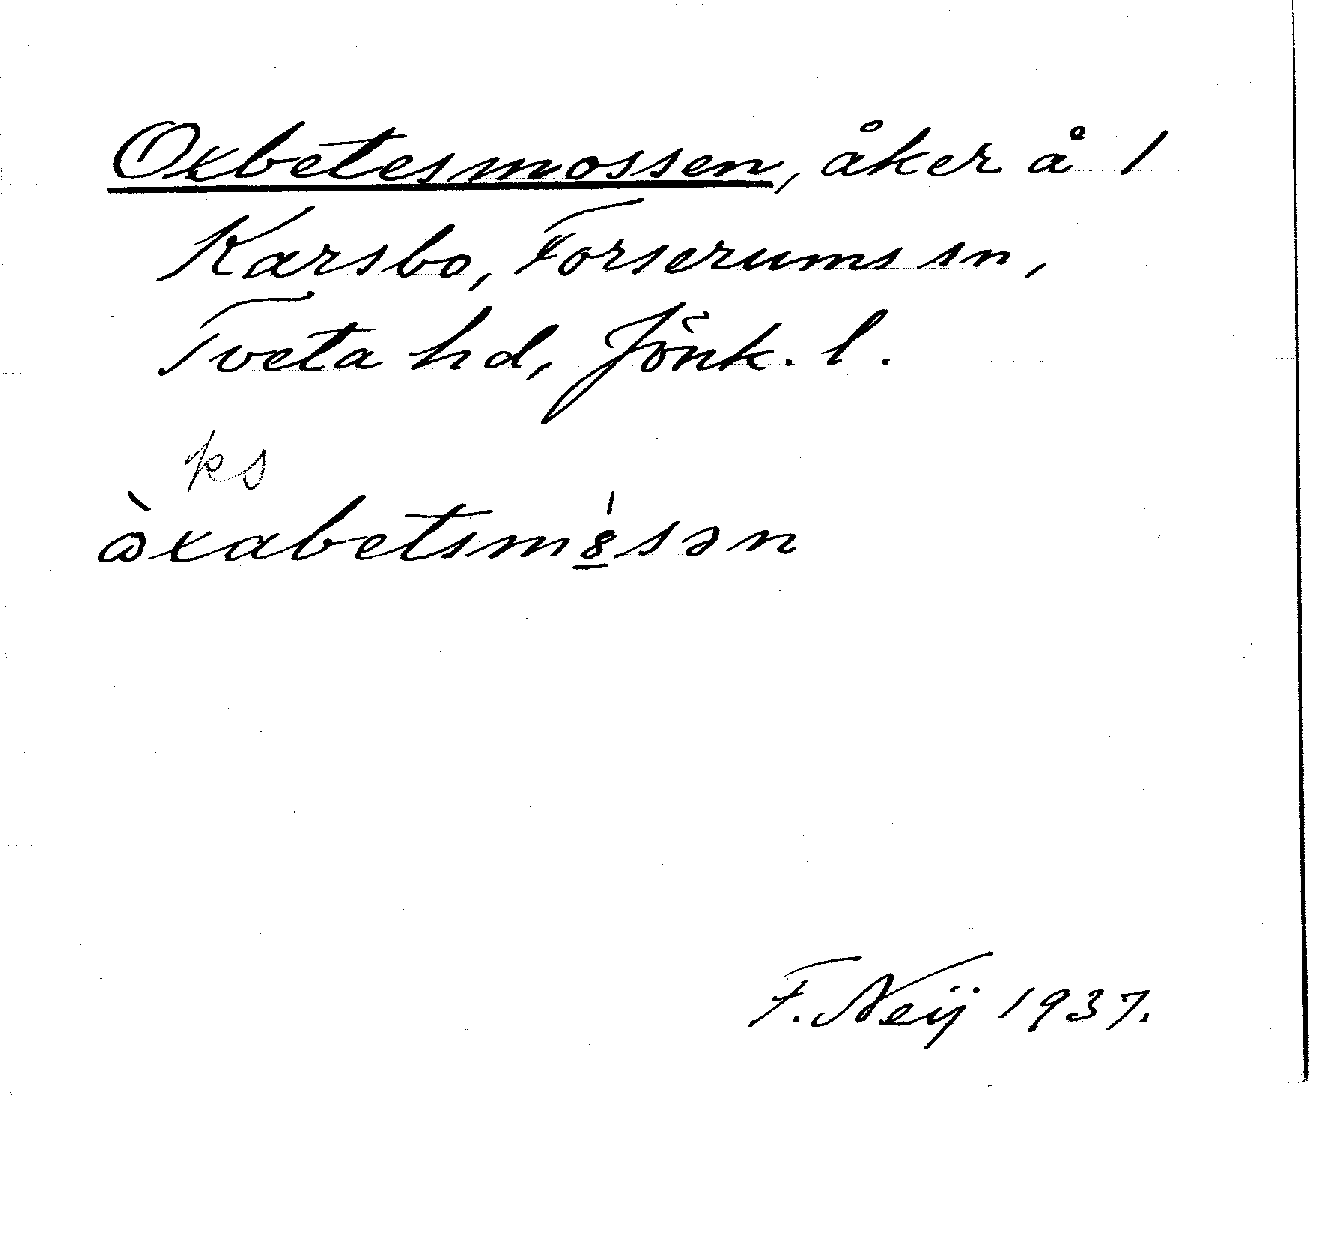 Oxbetesmossen, åker å 1
Karsbo, Forserums sn,
Tveta hd, Jönk. l.
ks
ὼxabetsm8̲́sən
F. Neij 1937.